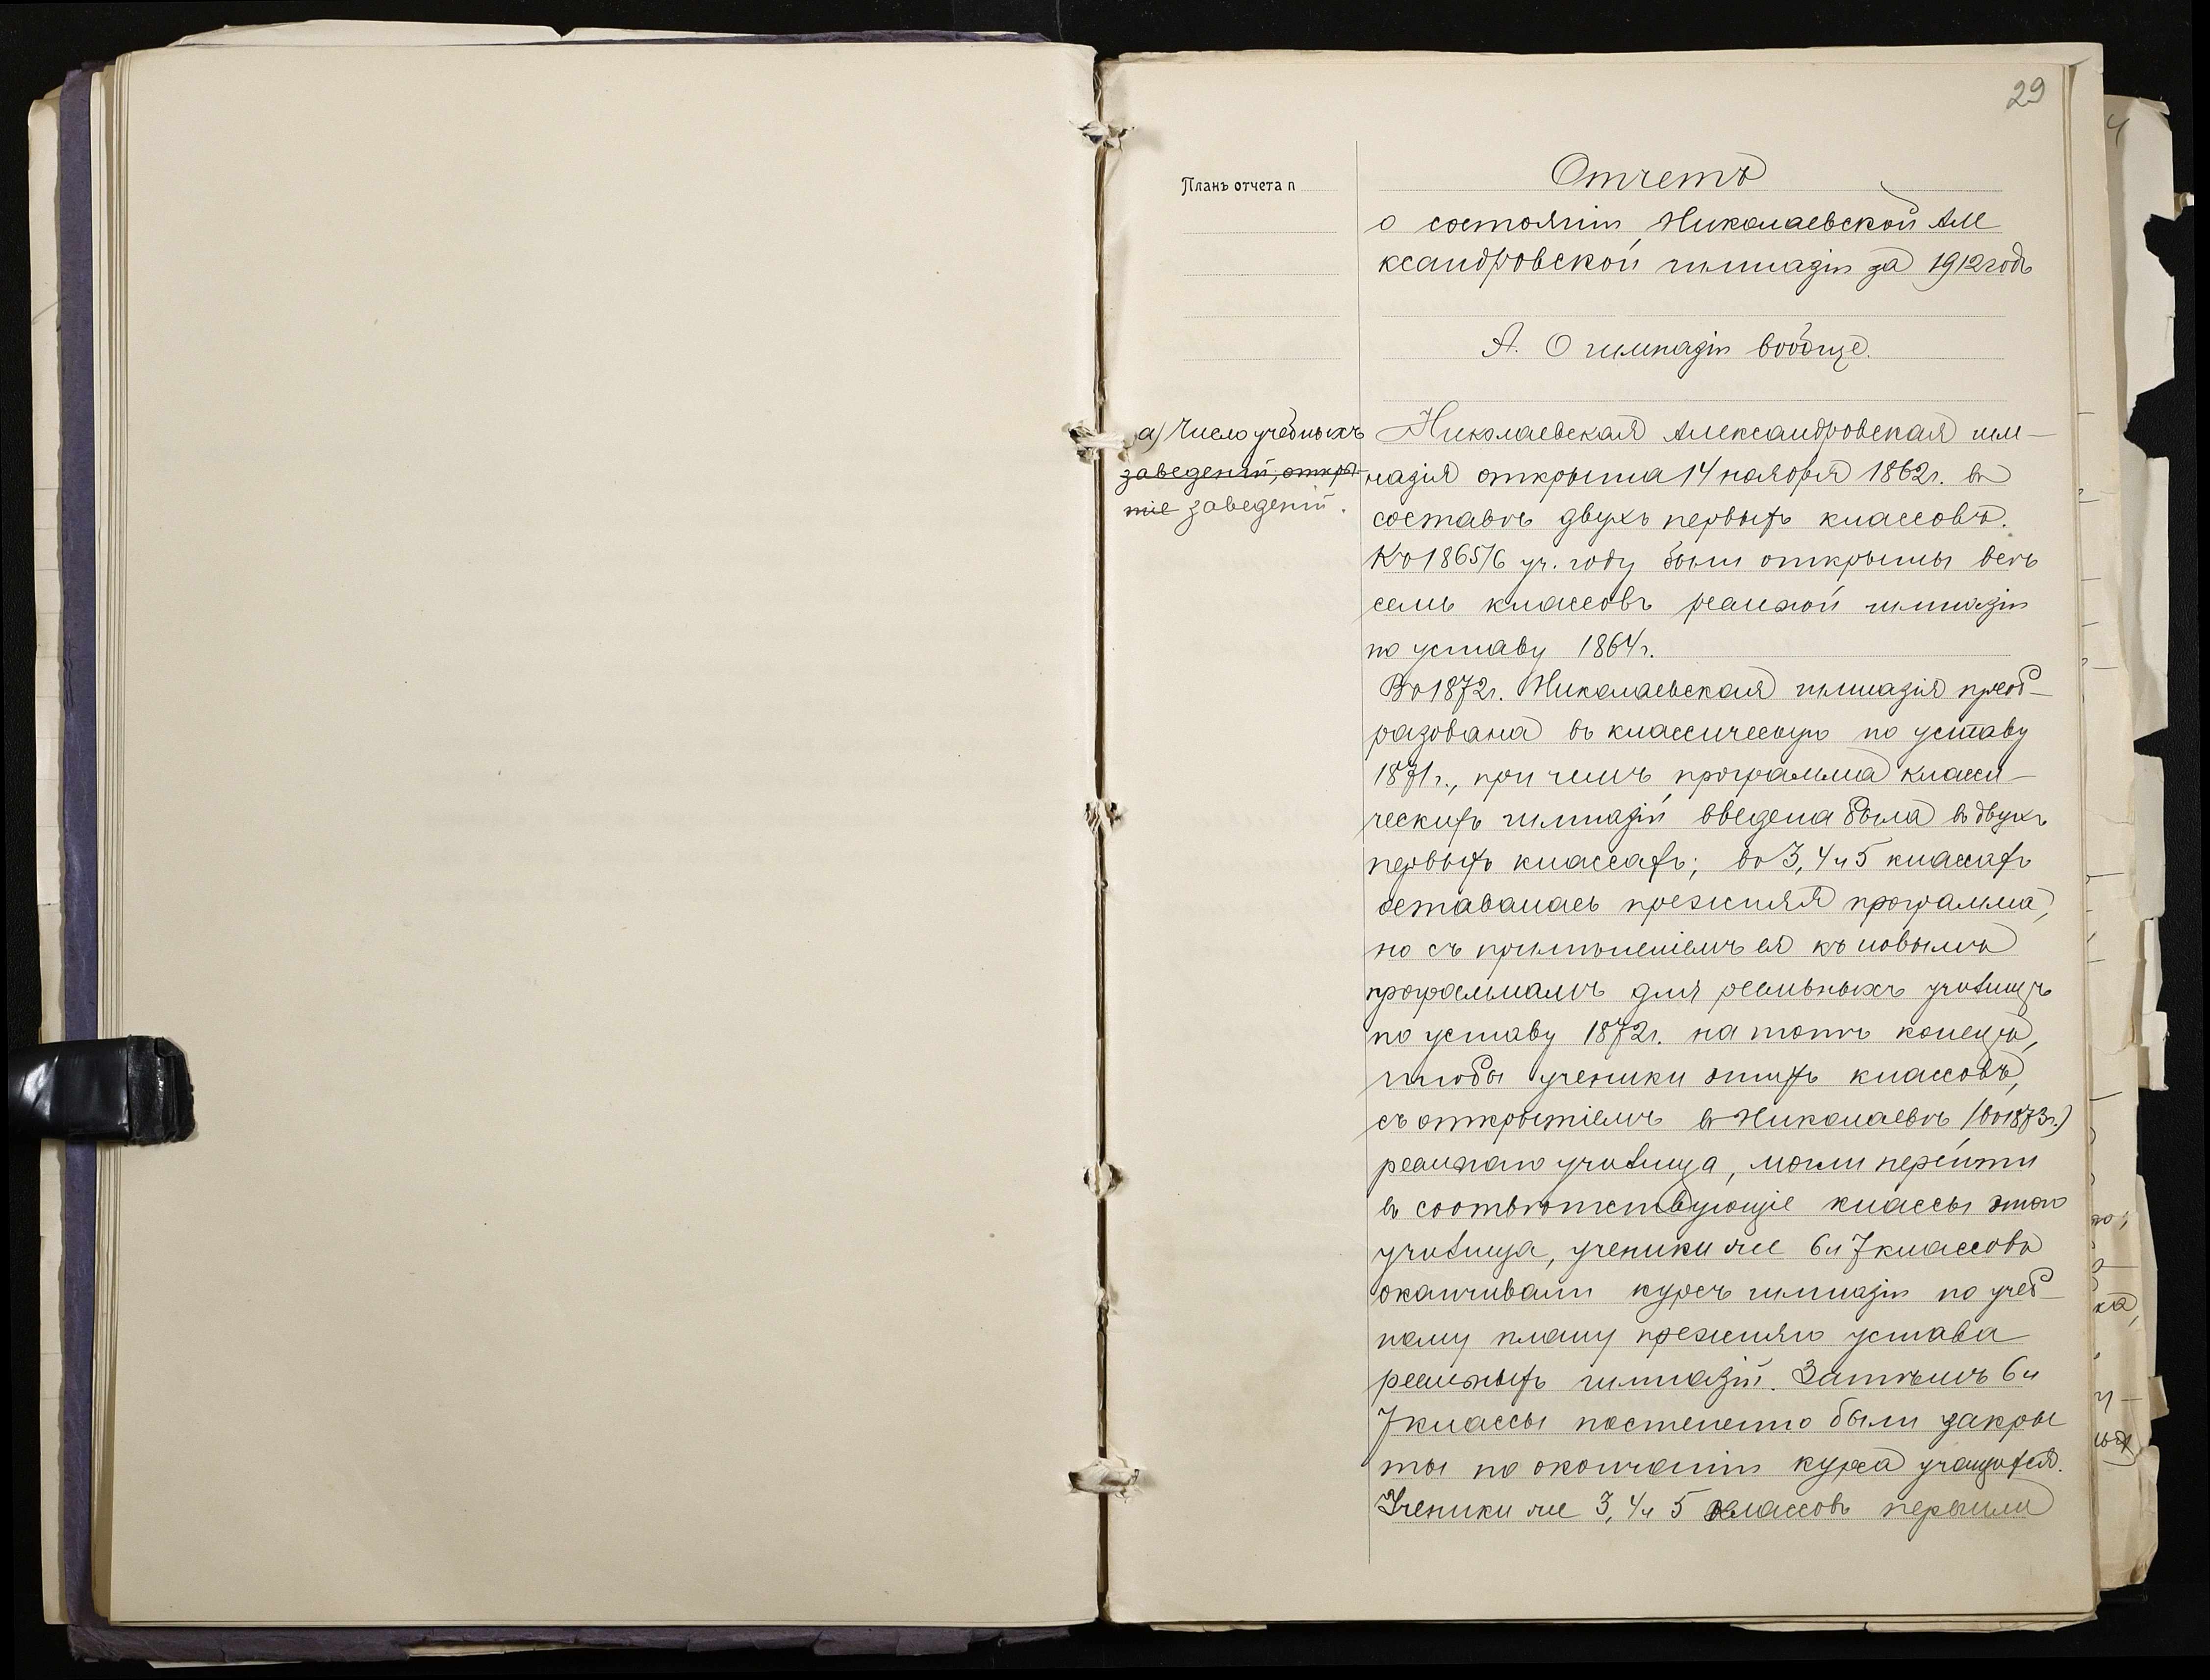 29
Планъ отчета п
Отчетъ
о состояніи Николаевской Але
ксандровской гимназіи за 1912 годъ
А. О гимназіи вообще.
а) Число учебныхъ
заведеній, откры-
тіе заведеній.
Николаевская Александровская гим-
назія открыта 14 ноября 1862 г. въ
составѣ двухъ первыхъ классовъ.
Къ 1865/6 уч. году были открыты всѣ
семь классовъ реальной гимназіи
по уставу 1864 г.
Въ 1872 г. Николаевская гимназія преоб-
разована въ классическую по уставу
1871 г., при чемъ программа класси-
ческихъ гимназій введена была въ двухъ
первыхъ классахъ; въ 3, 4 и 5 классахъ
оставалась прежняя программа,
но съ примѣненіемъ ея къ новымъ
программамъ для реальныхъ училищъ
по уставу 1872 г. на тотъ конецъ,
чтобы ученики этихъ классовъ,
съ открытіемъ въ Николаевѣ (въ 1873 г.)
реальнаго училища, могли перейти
въ соотвѣтствующіе классы этого
училища, ученики же 6 и 7 классовъ
оканчивали курсъ гимназіи по учеб-
ному плану прежняго устава
реальныхъ гимназій. Затѣмъ 6 и
7 классы постепенно были закры
ты по окончаніи курса учащихся.
Ученики же 3, 4 и 5 классовъ перешли